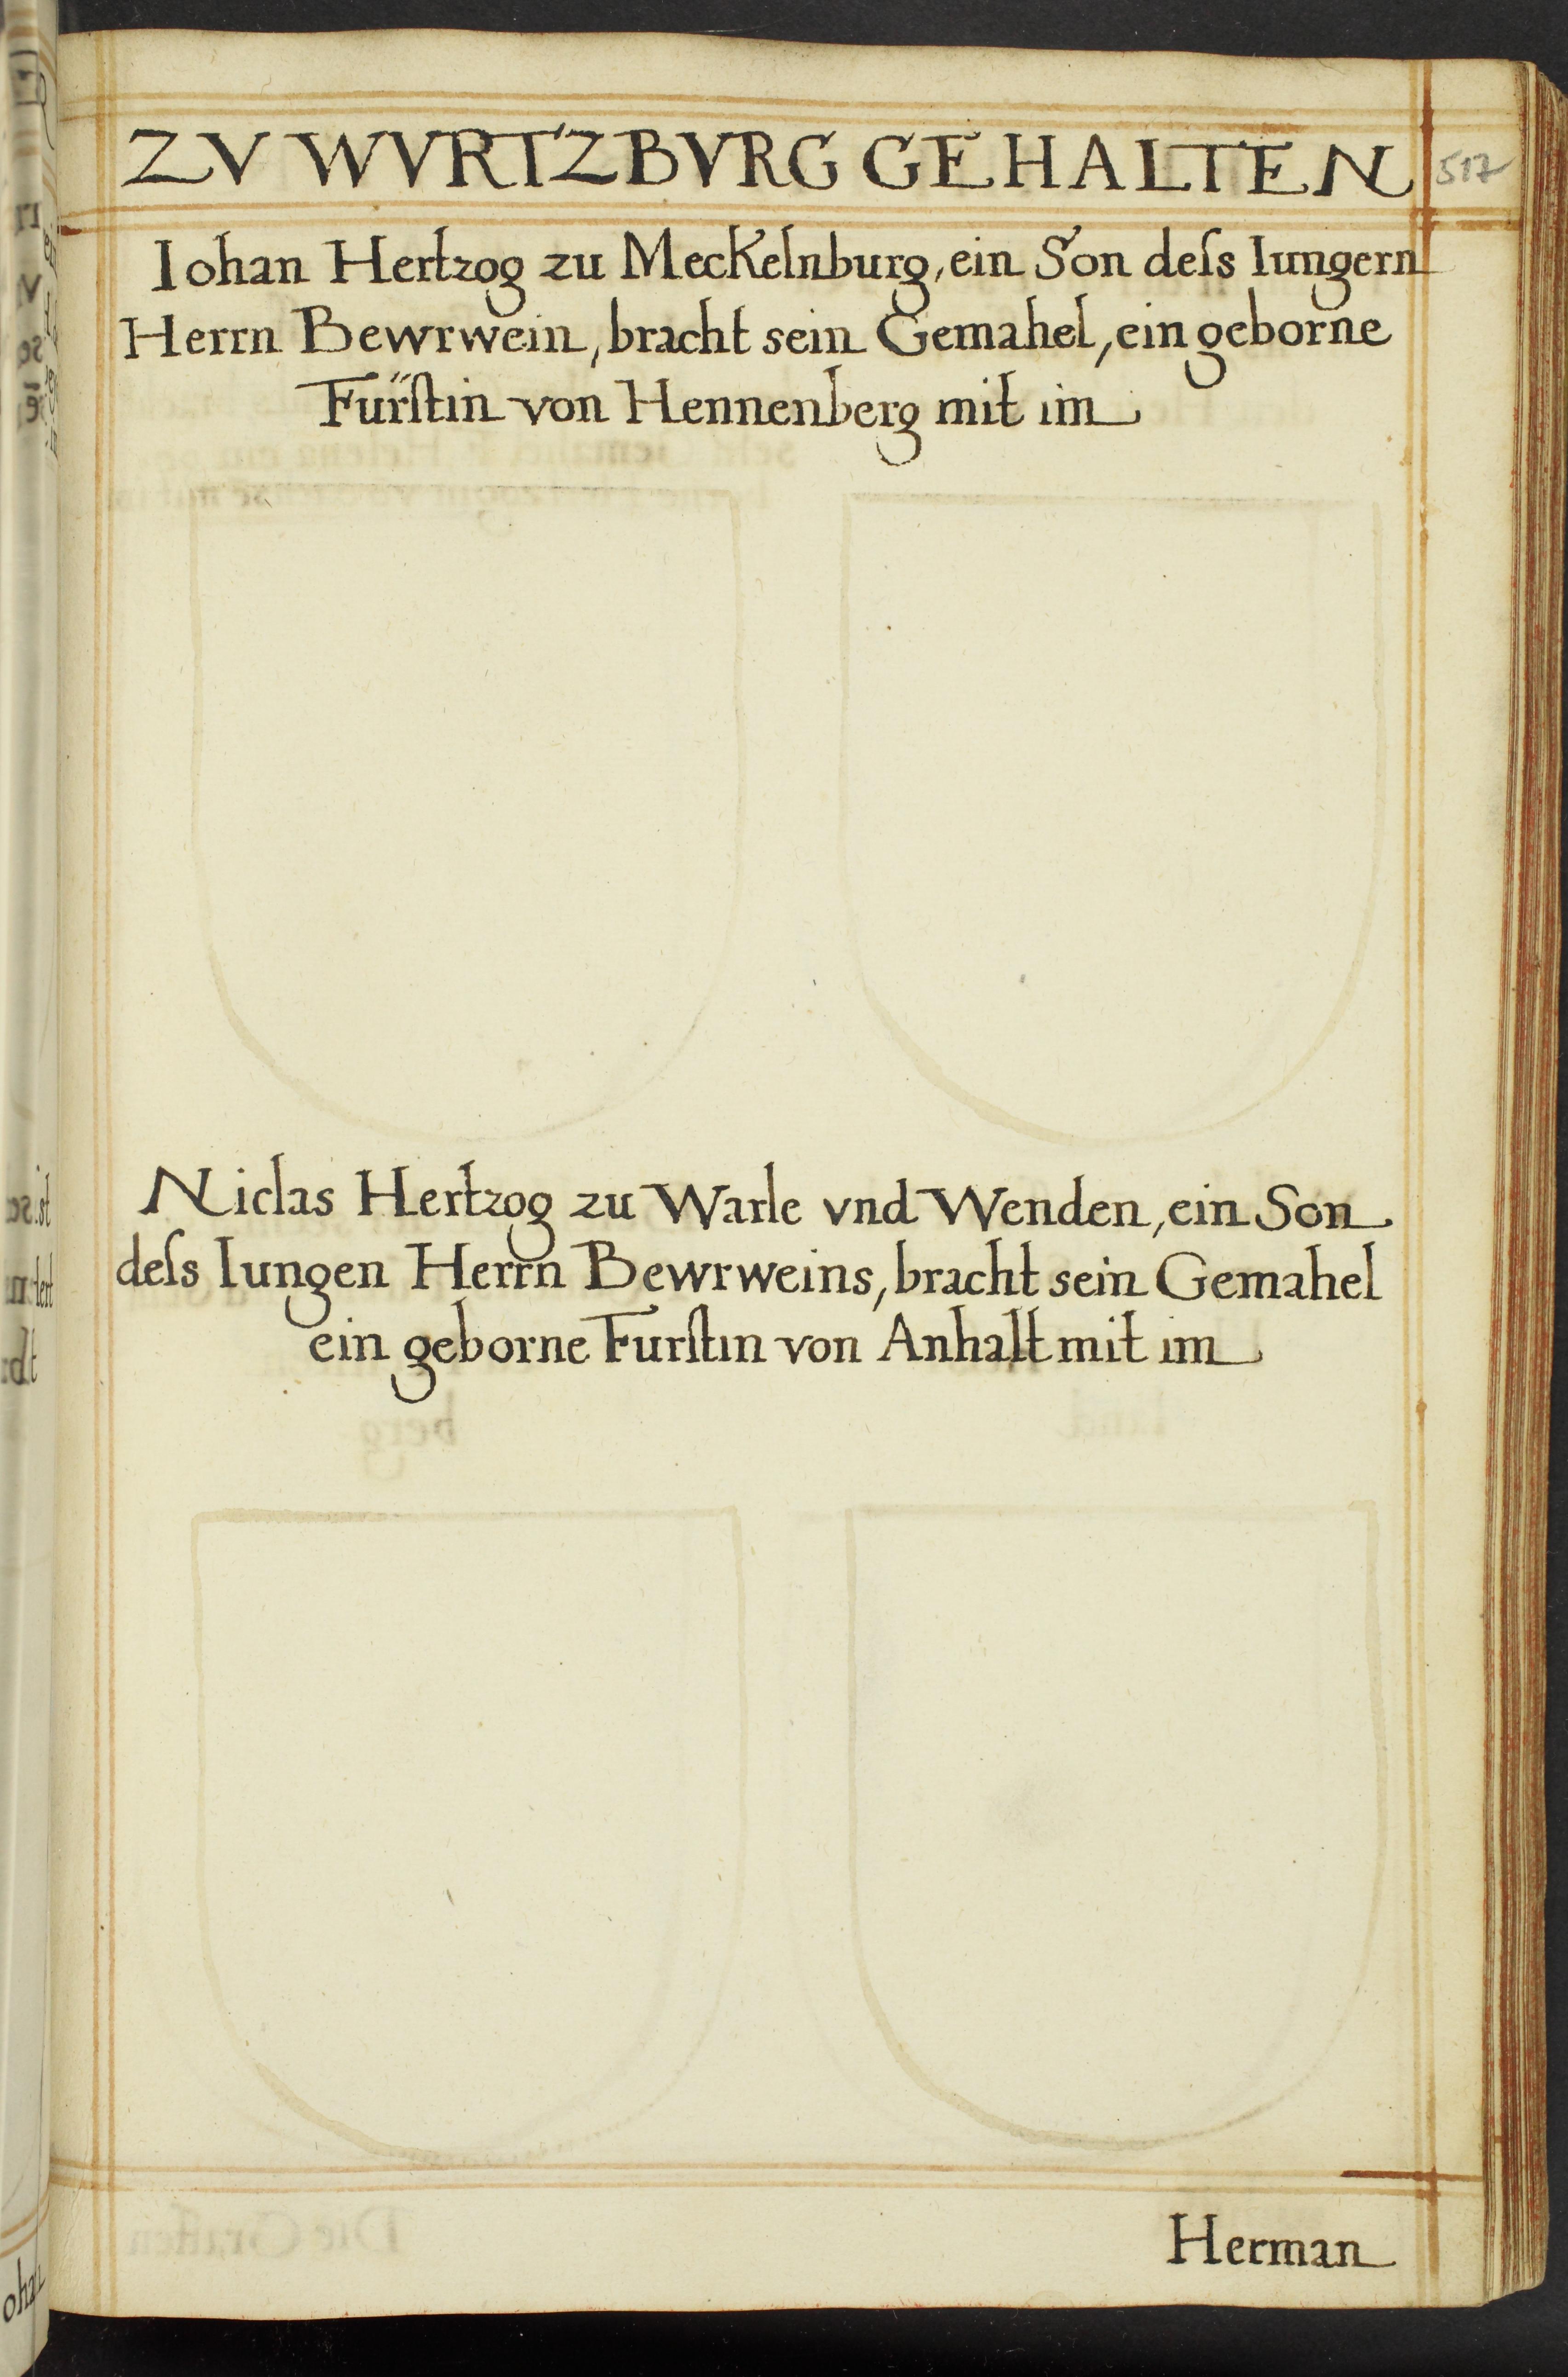 ZV WVRTZBVRG GEHALTEN
517
Iohan Hertzog zu Meckelnburg, ein Son deſs Iungern
Herrn Bewrwein, bracht sein Gemahel, ein geborne
Fürſtin von Hennenberg mit im
Niclas Hertzog zu Warle vnd Wenden, ein Son
deſs Iungen Herrn Bewrweins, bracht sein Gemahel
ein geborne Furſtin von Anhalt mit im
Herman